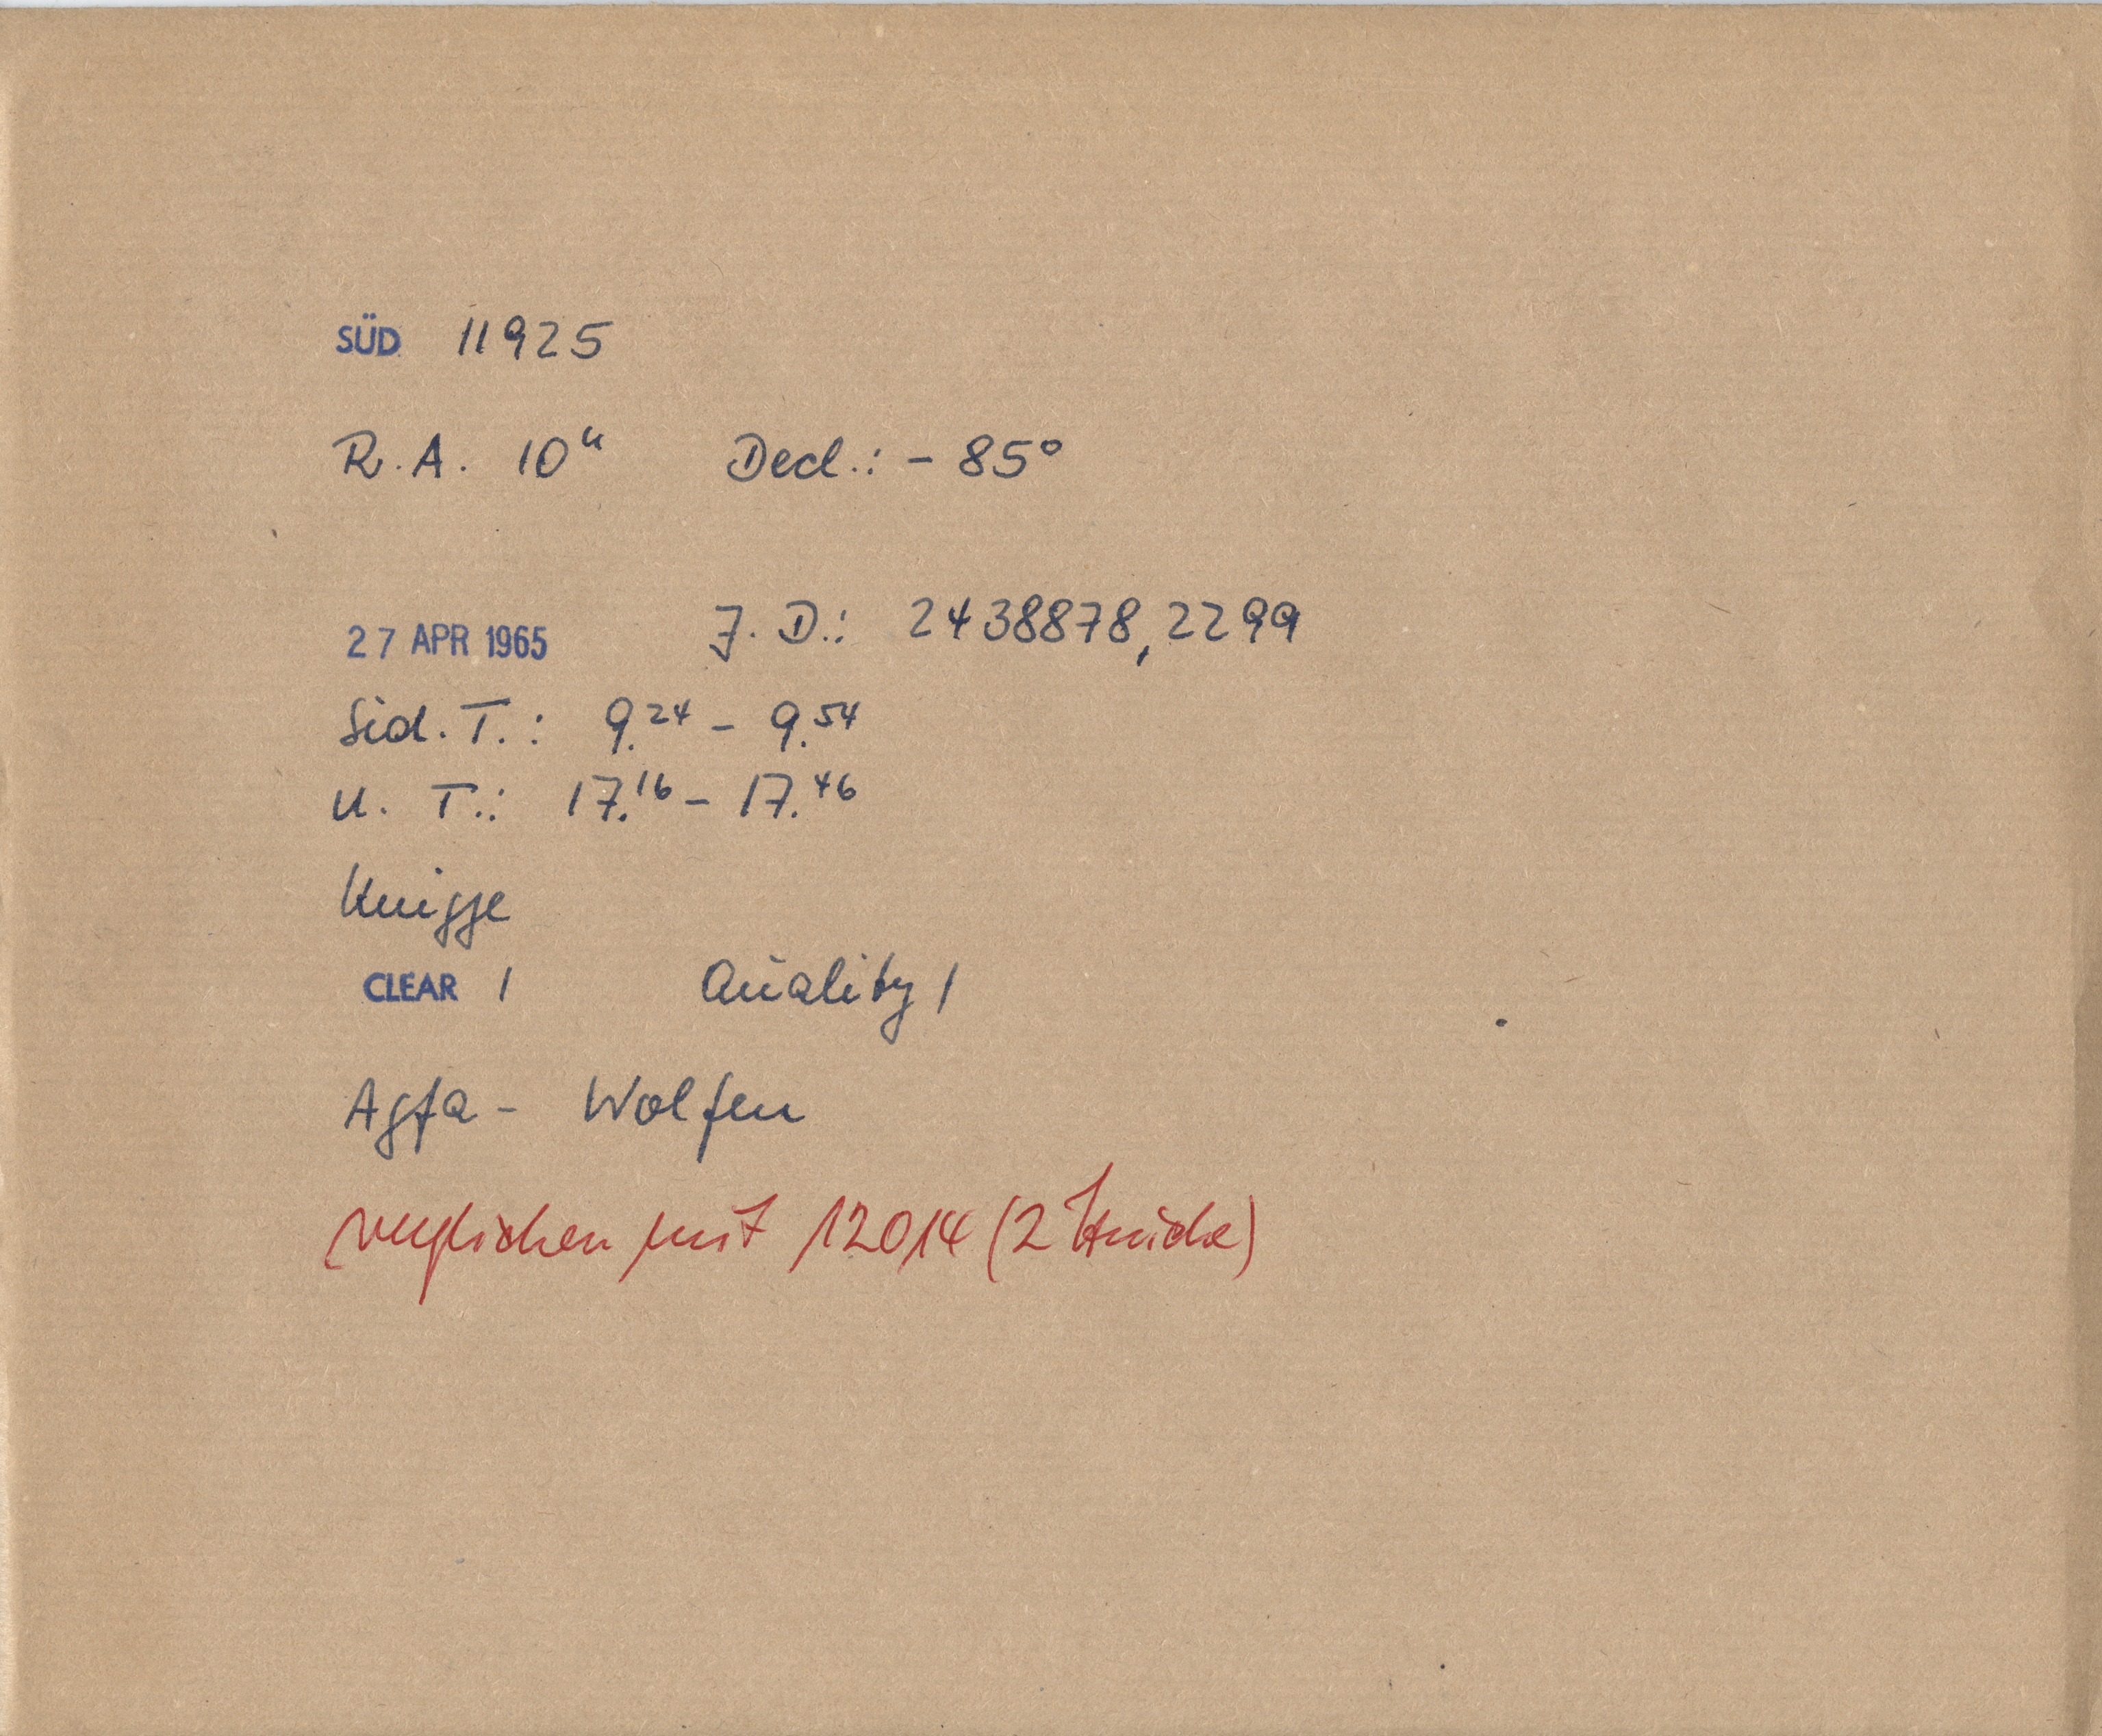 SÜD 11925
R.A. 10ʰ Decl.: - 85°
27 APR 1965 J.D.: 2438878,2299
Sid. T.: 9.24 - 9.54
U. T.: 17.16 - 17.46
Knigge
CLEAR 1 Quality 1
Agfa - Wolfen
verglichen mit 12014 (2